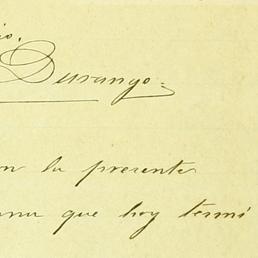 io.
Durango.
n la presente
ana que hoy termi